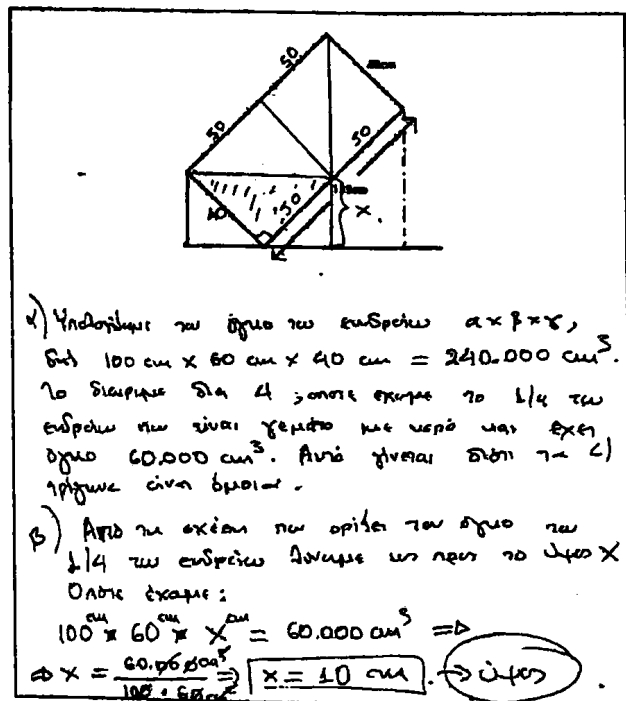 50
50
50
40
50
x
α) Υπολογίζουμε τον όγκο του ενυδρείου α x β x γ,
δηλ 100 cm x 60 cm x 40 cm = 240.000 cm³.
το διαιρούμε δια 4, οπότε έχουμε το 1/4 του
ενυδρείου που είναι γεμάτο με νερό και έχει
όγκο 60.000 cm³. Αυτό γίνεται διότι τα 4
τρίγωνα είναι όμοια.
β) Από τη σχέση που ορίζει τον όγκο του
1/4 του ενυδρείου λύνουμε ως προς το ύψος X
Οπότε έχουμε:
100 cm x 60 cm x X cm = 60.000 cm³ =>
=> x = 60.000 cm³ / 100 · 60 cm² => x = 10 cm. → ύψος